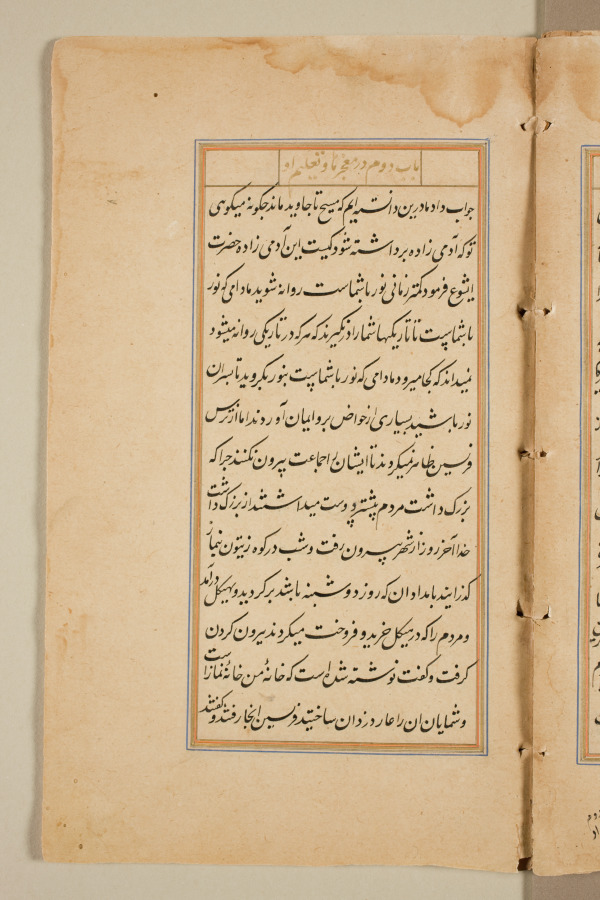 باب دوم در معجزها و تعلیم او
جواب داد مادرین دانسته ایم که مسیح تا جاوید ماند چگونه میگوئی
تو که آدمی زاده برداشته شود کیست این آدمی زاده حضرت
ایشوع فرمود که زمانی نور با شماست روانه شوید مادامی که نور
با شماست تا تاریکیها شما را در نگیرند که هر که در تاریکی روانه میشود
نمیداند که کجا میرود مادامی که نور با شماست بنور بگروید تا پسران
نور باشید بسیاری از خواص برو ایمان آوردند اما از ترس
فریسین ظاهر نمیکردند تا ایشان را از جماعت بیرون نکنند چرا که
بزرگ داشت مردم پیشتر دوست میداشتند از بزرگ داشت
خدا آخر روز از شهر بیرون رفت و شب در کوه زیتون نیاز
گذرانید بامدادان که روز دوشنبه باشد برگردید و بهیکل درآمد
و مردم را که در هیکل خرید و فروخت میکردند بیرون کردن
گرفت و گفت نوشته شده است که خانۀ من خانۀ نماز است
و شمایان آن را غار دزدان ساختید فریسین آنجا رفتند و گفتند